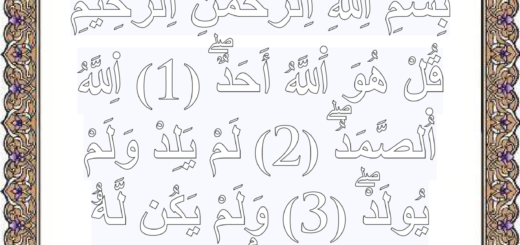 بِسْمِ اِ۬للَّهِ اِ۬لرَّحْمَٰنِ اِ۬لرَّحِيمِ
قُلْ هُوَ اَ۬للَّهُ أَحَدٌۖ (1) اِ۬للَّهُ
اُ۬لصَّمَدُۖ (2) لَمْ يَلِدْ وَلَمْ
يُولَدْۖ (3) وَلَمْ يَكُن لَّهُۥ